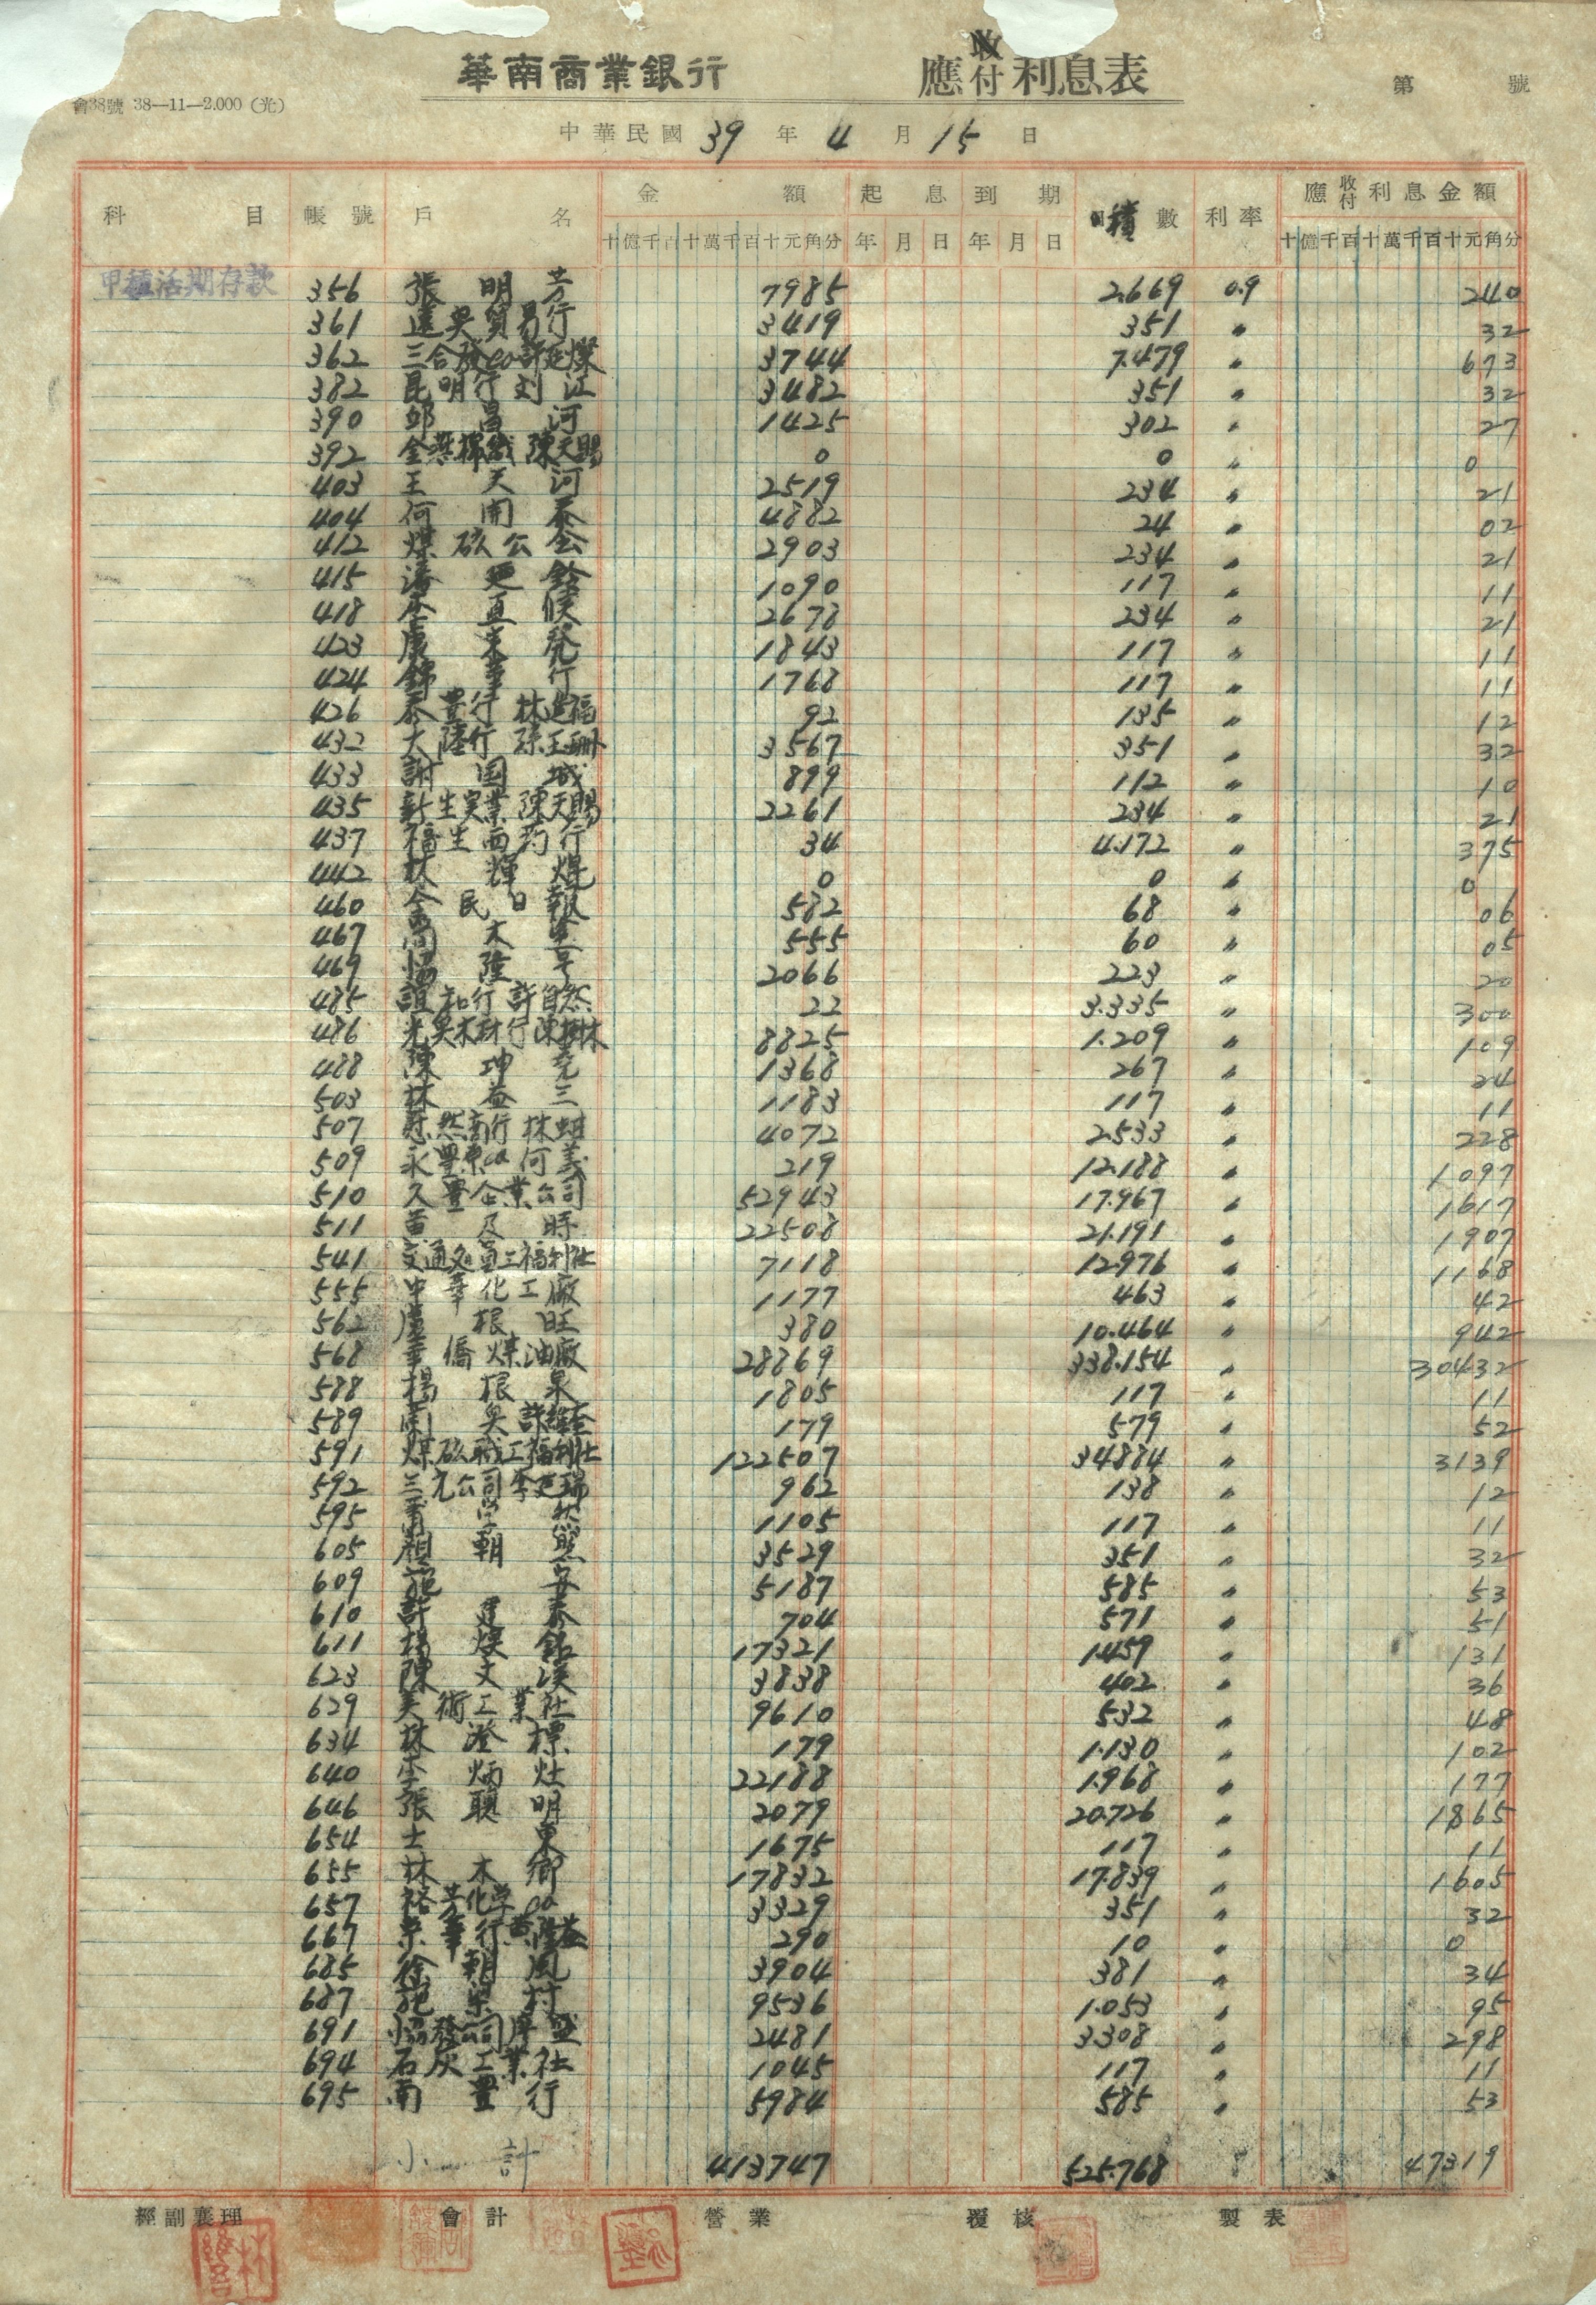 華南商業銀行 應收付利息表 第 號
會38號 38—11—2.000 (光)
中華民國 39 年 4 月 15 日
科目 帳號 戶名 金額 起息 到期 積數 利率 應收付利息金額
十億千百十萬千百十元角分 年月日 年月日 十億千百十萬千百十元角分
甲種活期存款 356 張明芳 7985 2.669 0.9 240
361 遠興貿易行 3419 351 〃 32
362 三合發co許廷燦 3744 7.479 〃 673
382 昆明行刘江 3482 351 〃 32
390 邱昌河 1425 302 〃 27
392 陳天賜 0 0 〃 0
403 王天河 2519 234 〃 21
404 何開泰 4882 24 〃 02
412 煤砿公会 2903 234 〃 21
415 潘廷 1090 117 〃 11
418 李直候 2678 234 〃 21
423 康来發 1843 117 〃 11
424 錦華行 1768 117 〃 11
426 泰豊行林 福 92 135 〃 12
432 大陸行孫玉珊 3567 351 〃 32
433 謝国城 899 112 〃 10
435 新生実業陳天賜 2261 234 〃 21
437 福生西药行 34 4.172 〃 375
442 林輝焜 0 0 〃 0
460 全民日報 582 68 〃 06
467 大 555 60 〃 05
469 協隆号 2066 223 〃 20
485 誼和行許自然 22 3.335 〃 300
486 光興木材行陳樹林 8825 1.209 〃 109
488 陳坤尭 1368 267 〃 24
503 林益三 1183 117 〃 11
507 然商行林 4072 2533 〃 228
509 永豊原co何義 219 12.188 〃 1097
510 久豊企業公司 52943 17.967 〃 1617
511 黄及時 22508 21.191 〃 1907
541 交通処員工福利社 7118 12976 〃 1168
555 中華化工廠 1177 463 〃 42
562 盧根旺 380 10.464 〃 942
568 華僑煤油廠 28869 338.154 〃 30432
588 楊根泉 1805 117 〃 11
589 南興許 179 579 〃 52
591 煤砿職工福利社 122507 34884 〃 3139
592 三元公司李廷瑞 962 138 〃 12
595 1105 117 〃 11
605 顏朝 3529 351 〃 32
609 施安 5187 585 〃 53
610 許建泰 704 571 〃 51
611 楊焕銘 17321 1.459 〃 131
623 陳文漢 3838 402 〃 36
629 美術工業社 9610 532 〃 48
634 林澄標 179 1.130 〃 102
640 李炳灶 22188 1.968 〃 177
646 張聰明 2079 20.726 〃 1865
654 士東 1675 117 〃 11
655 林木鄉 17832 17.839 〃 1605
657 裕芳化学co 3329 351 〃 32
667 榮華行黄 益 290 10 〃 0
685 徐朝風 3904 381 〃 34
687 施柴村 9536 1.053 〃 95
691 協發公司 2481 3.308 〃 298
694 石灰工業社 1045 117 〃 11
695 南豊行 5984 585 〃 53
小計 413747 525.768 47319
經副襄理 會計 營業 覆核 製表